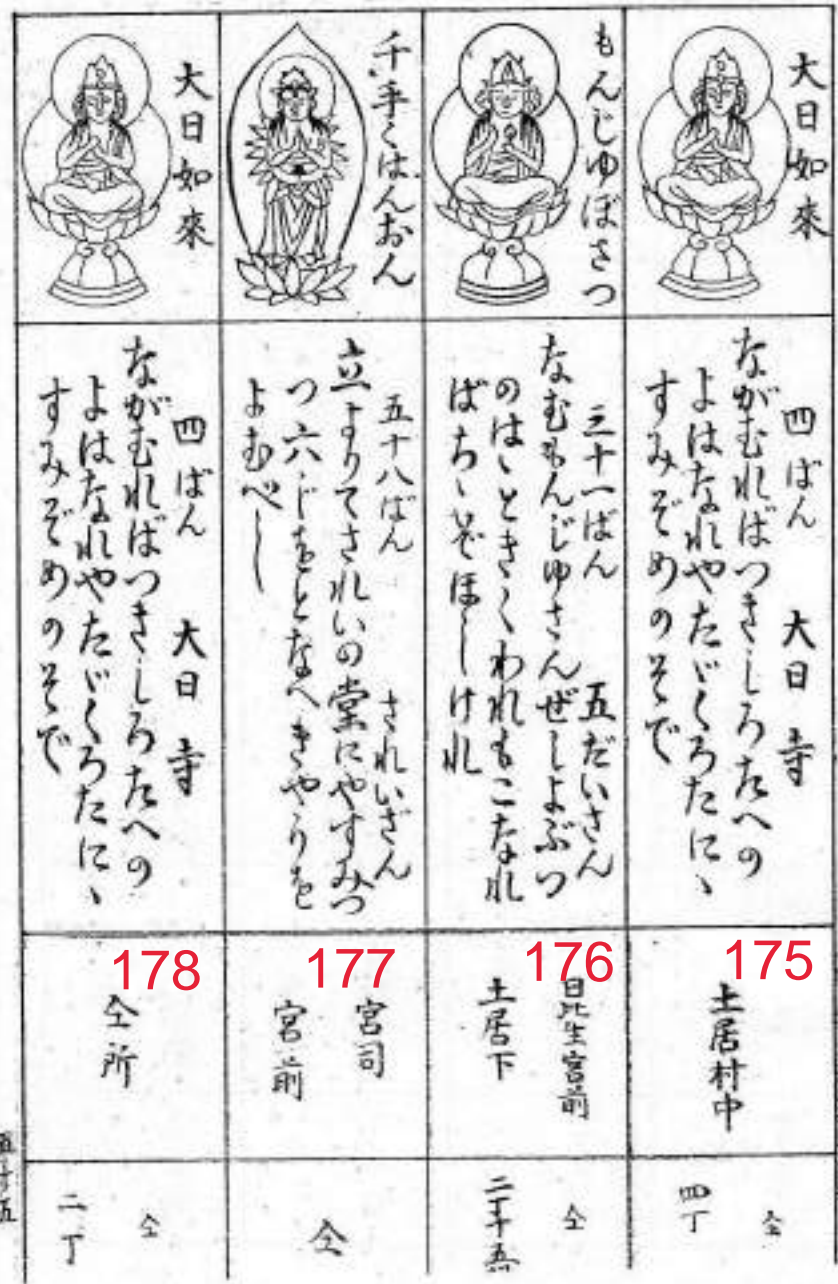 大日如來
四ばん 大日寺
ながむればつきしろたへの
よはなれやたゞくろたにゝ
すみぞめのそで
175
土居村中
仝
四丁
もんじゆぼさつ
三十一ばん 五だいさん
なむもんじゆさんぜしよぶつ
のはゝときくわれもこなれ
ばちゝぞほしけれ
176
日比生宮前
土居下
仝
千手くはんおん
五十八ばん されいざん
立よりてされいの堂にやすみつ
つ六じをとなへきやうを
よむべし
177
宮司
宮前
仝
大日如來
四ばん 大日寺
ながむればつきしろたへの
よはなれやたゞくろたにゝ
すみぞめのそで
178
仝所
仝
二丁
五十五